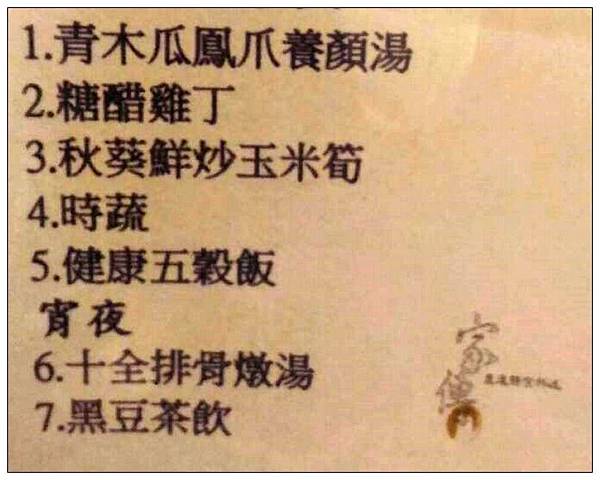 1.青木瓜鳳爪養顏湯
2.糖醋雞丁
3.秋葵鮮炒玉米筍
4.時蔬
5.健康五穀飯
宵夜
6.十全排骨燉湯
7.黑豆茶飲
家傳